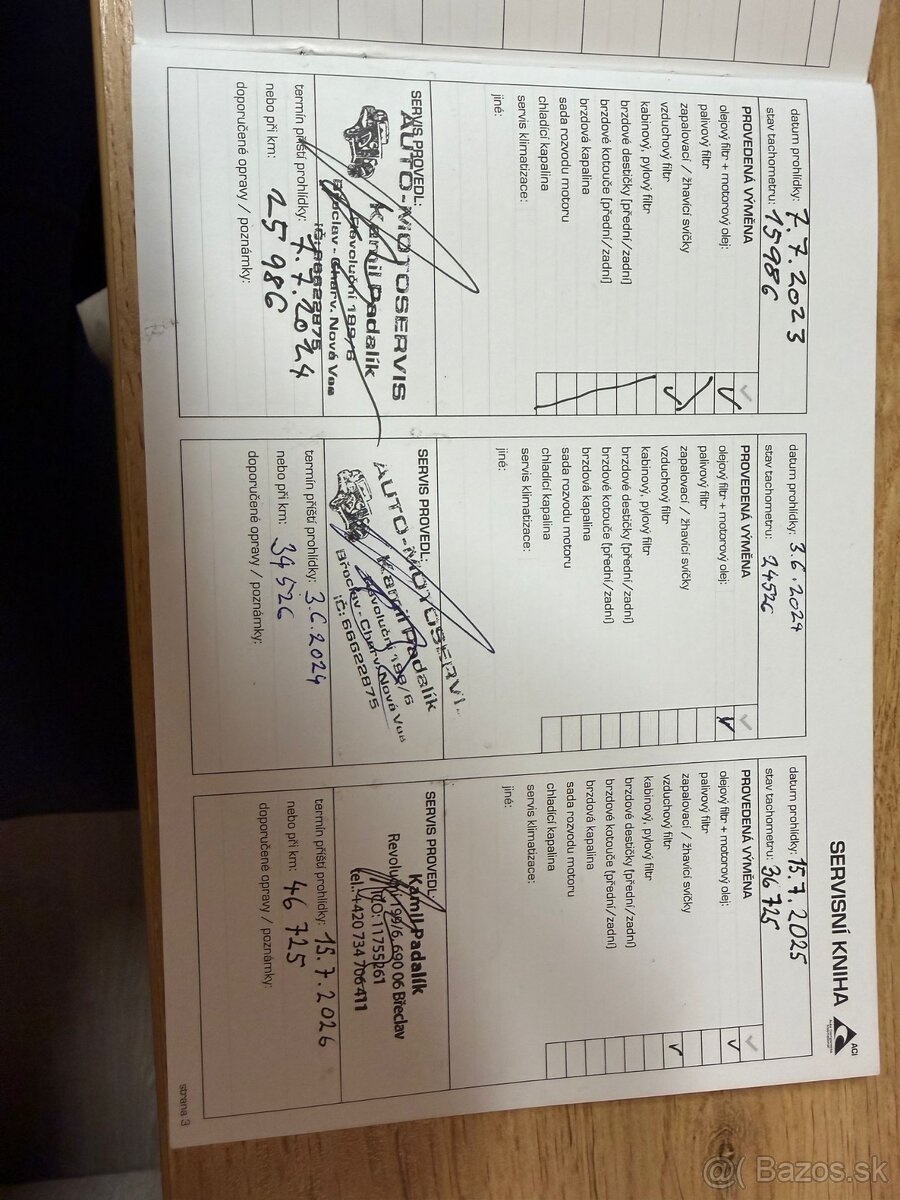 SERVISNÍ KNIHA
ACI
datum prohlídky: 7.7.2023
stav tachometru: 15986
PROVEDENÁ VÝMĚNA
olejový filtr + motorový olej:
palivový filtr
zapalovací / žhavicí svíčky
vzduchový filtr
kabinový, pylový filtr
brzdové destičky (přední/zadní)
brzdové kotouče (přední/zadní)
brzdová kapalina
sada rozvodu motoru
chladící kapalina
servis klimatizace:
jiné:
SERVIS PROVEDL:
AUTO-MOTOSERVIS
Kamil Padalík
Revoluční 199/6
Břeclav - Charv. Nová Ves
IČ: 66622875
termín příští prohlídky: 7.7.2024
nebo při km: 25986
doporučené opravy / poznámky:
datum prohlídky: 3.6.2024
stav tachometru: 24526
PROVEDENÁ VÝMĚNA
olejový filtr + motorový olej:
palivový filtr
zapalovací / žhavicí svíčky
vzduchový filtr
kabinový, pylový filtr
brzdové destičky (přední/zadní)
brzdové kotouče (přední/zadní)
brzdová kapalina
sada rozvodu motoru
chladící kapalina
servis klimatizace:
jiné:
SERVIS PROVEDL:
AUTO-MOTOSERVI
Kamil Padalík
Revoluční 199/6
Břeclav - Charv. Nová Ves
IČ: 66622875
termín příští prohlídky: 3.6.2024
nebo při km: 34526
doporučené opravy / poznámky:
datum prohlídky: 15.7.2025
stav tachometru: 36725
PROVEDENÁ VÝMĚNA
olejový filtr + motorový olej:
palivový filtr
zapalovací / žhavicí svíčky
vzduchový filtr
kabinový, pylový filtr
brzdové destičky (přední/zadní)
brzdové kotouče (přední/zadní)
brzdová kapalina
sada rozvodu motoru
chladící kapalina
servis klimatizace:
jiné:
SERVIS PROVEDL:
Kamil Padalík
Revoluční 199/6, 690 06 Břeclav
IČO: 11755261
tel.: +420 734 706 411
termín příští prohlídky: 15.7.2026
nebo při km: 46725
doporučené opravy / poznámky:
strana 3
Bazos.sk